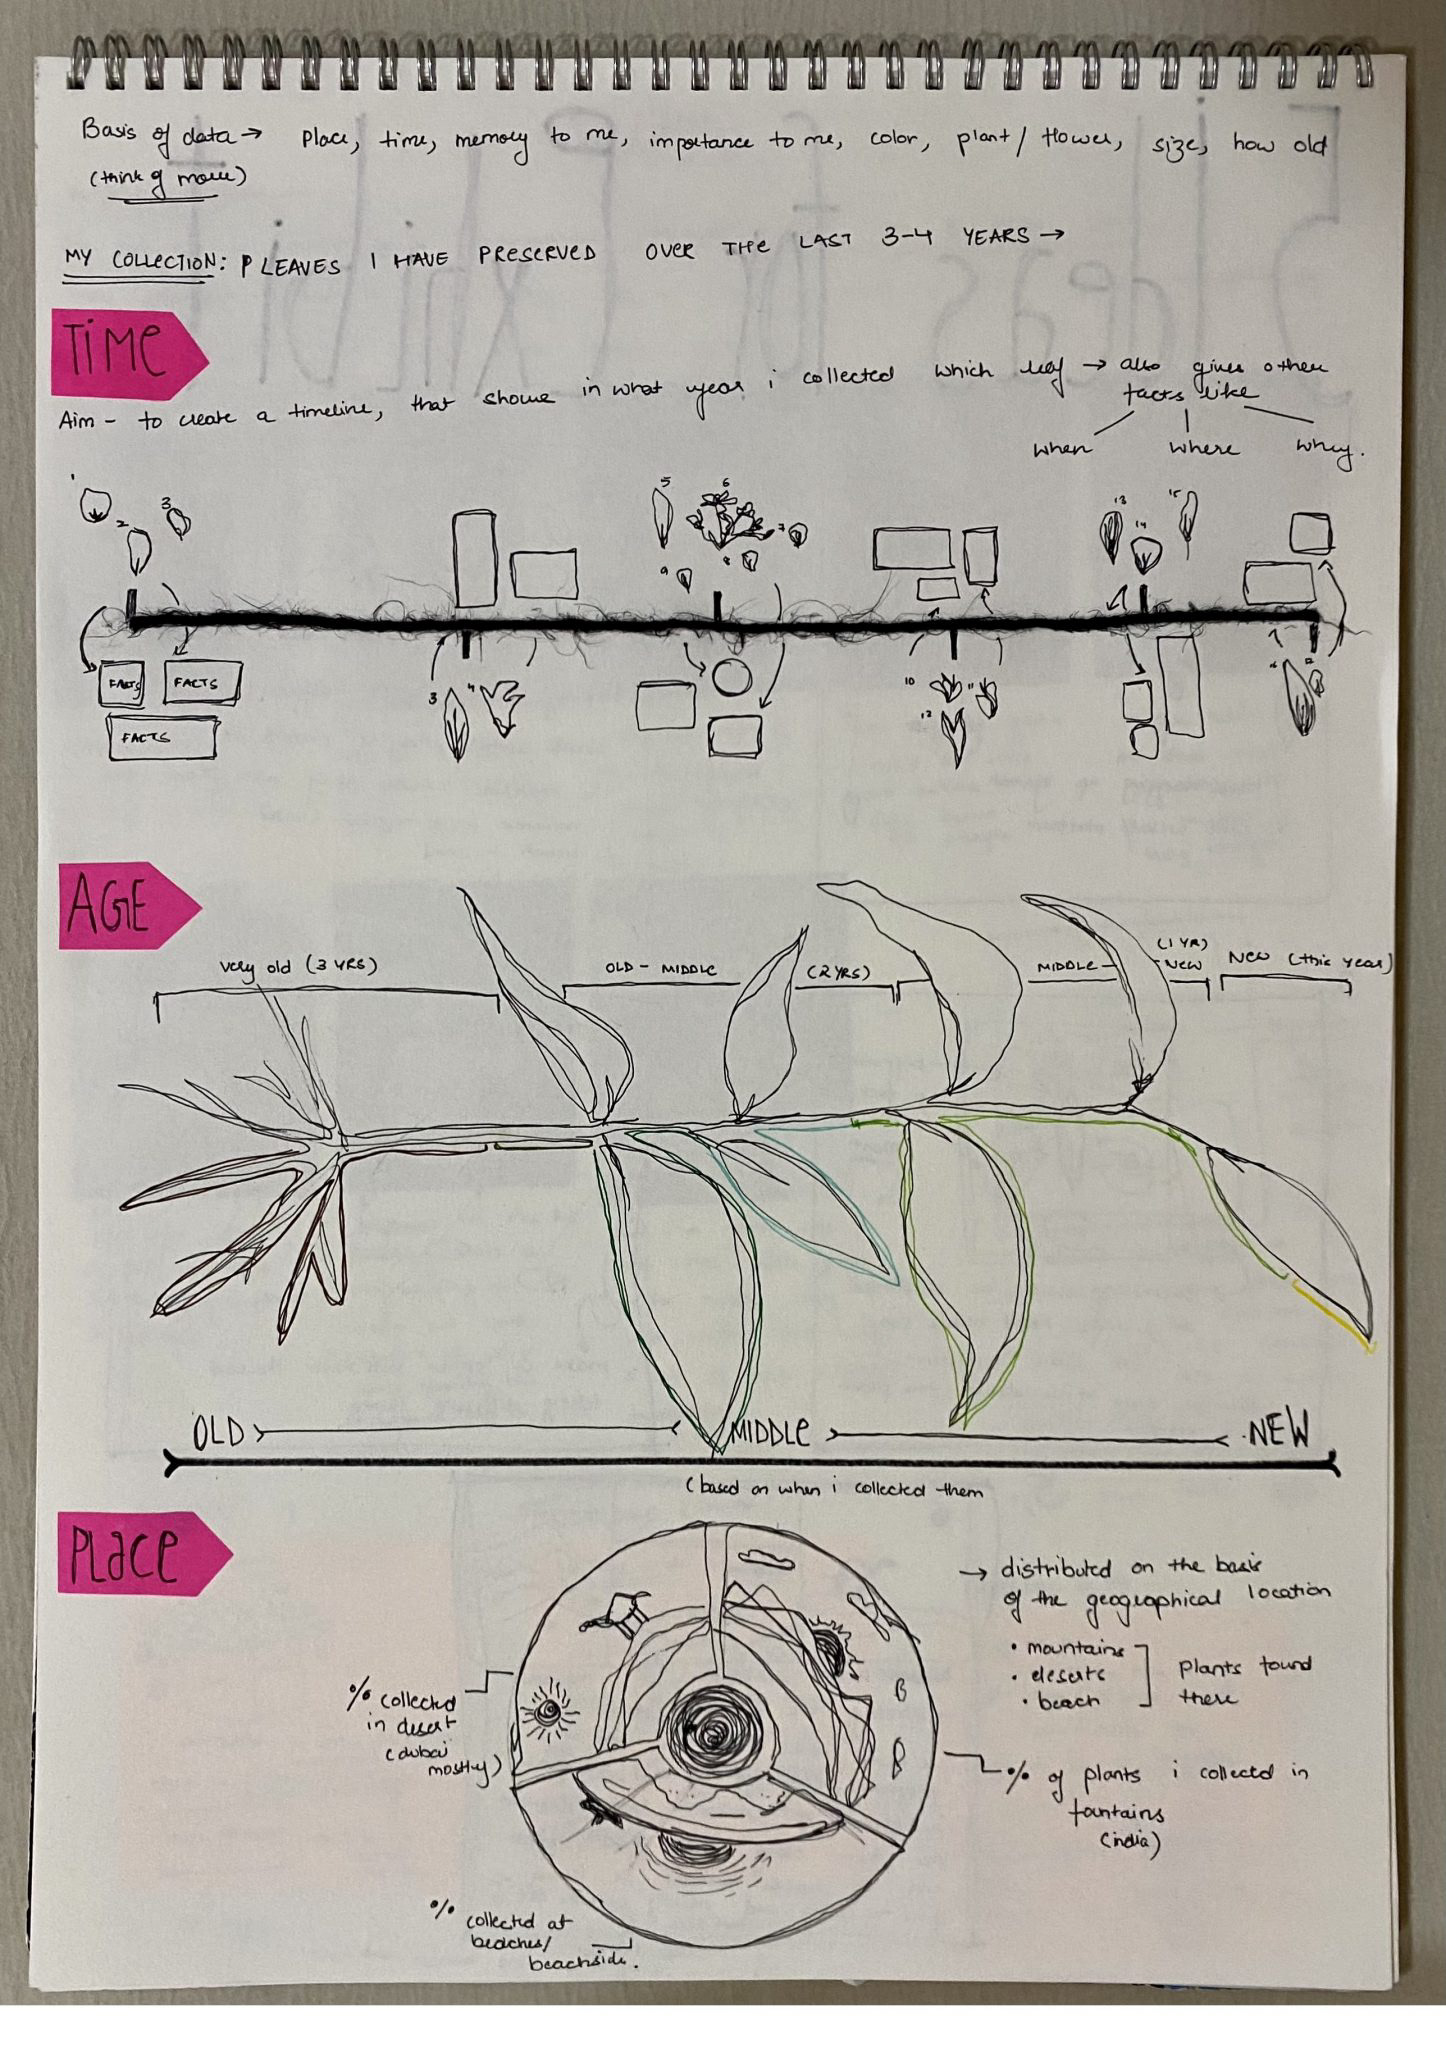 Basis of data → Place, time, memory to me, importance to me, color, plant/flower, size, how old
(think of more)
MY COLLECTION: PLEAVES I HAVE PRESERVED OVER THE LAST 3-4 YEARS →
TIME
Aim - to create a timeline, that shows in what year i collected which leaf → also gives other
facts like
when where why.
1
2
3
5
6
7
8
9
13
14
15
FACTS
FACTS
FACTS
3
4
10
11
12
AGE
very old (3 YRS)
OLD - MIDDLE (2YRS)
MIDDLE - NEW (1 YR)
NEW (this year)
OLD MIDDLE NEW
(based on when i collected them
PLACE
→ distributed on the basis
of the geographical location
• mountains
• deserts
• beach
plants found
there
% collected
in desert
(dubai
mostly)
% of plants i collected in
fountains
(india)
% collected at
beaches/
beachside.